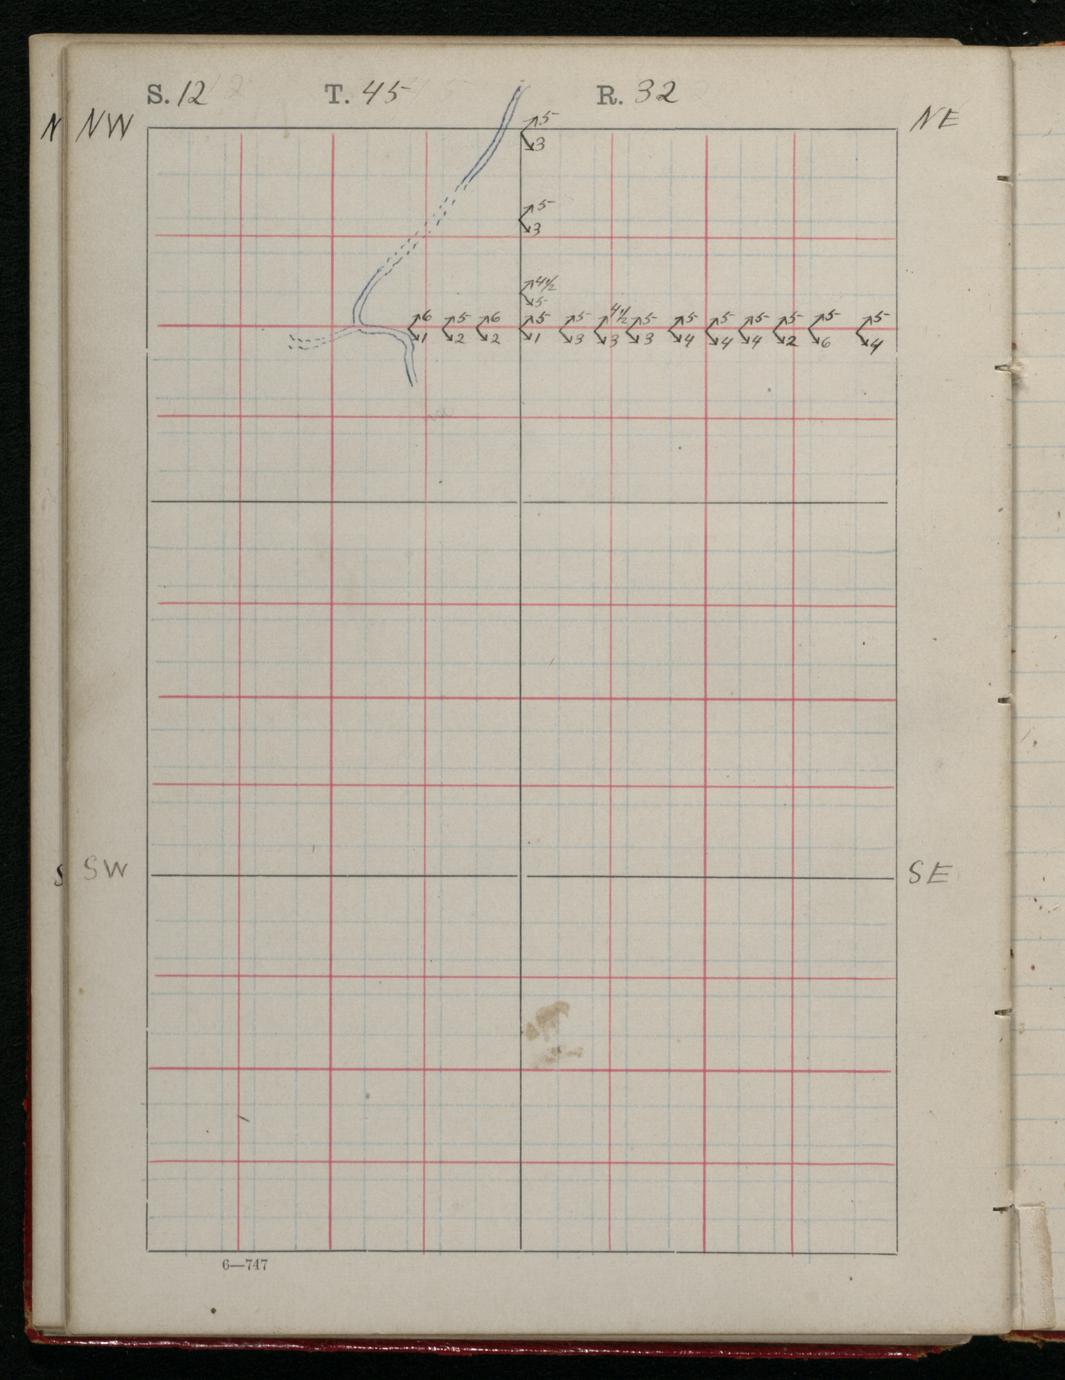 S. 12 T. 45 R. 32
N NW NE
5
3
5
3
4 1/2
5
6 5 6 5 5 4 1/2 5 5 5 5 5 5 5
1 2 2 1 3 3 3 4 4 4 2 6 4
S SW SE
6—747